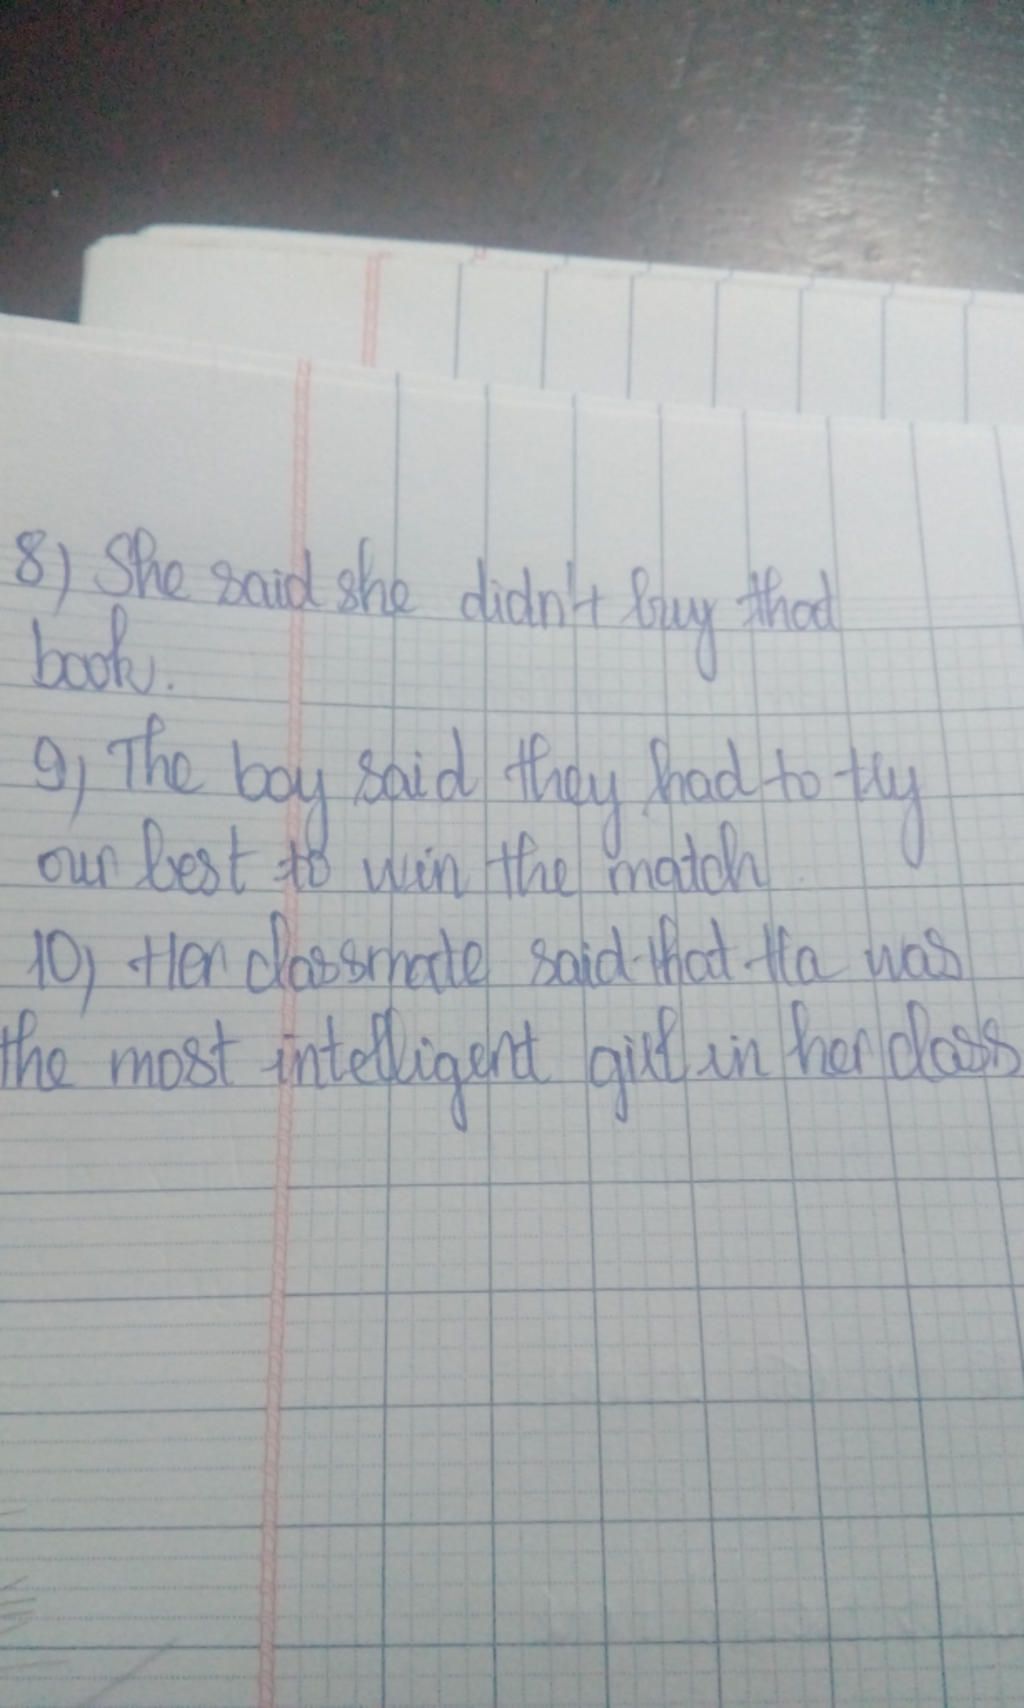 8) She said she didn't buy that
book.
9) The boy said they had to try
our best to win the match.
10) Her classmate said that Ha was
the most intelligent girl in her class